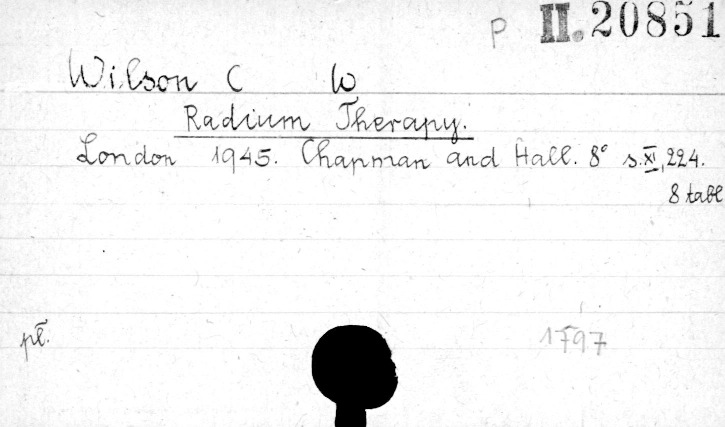 P II. 20851
Wilson C W
Radium Therapy.
London 1945. Chapman and Hall. 8° s. XI, 224.
8 tabl
pł.
1797